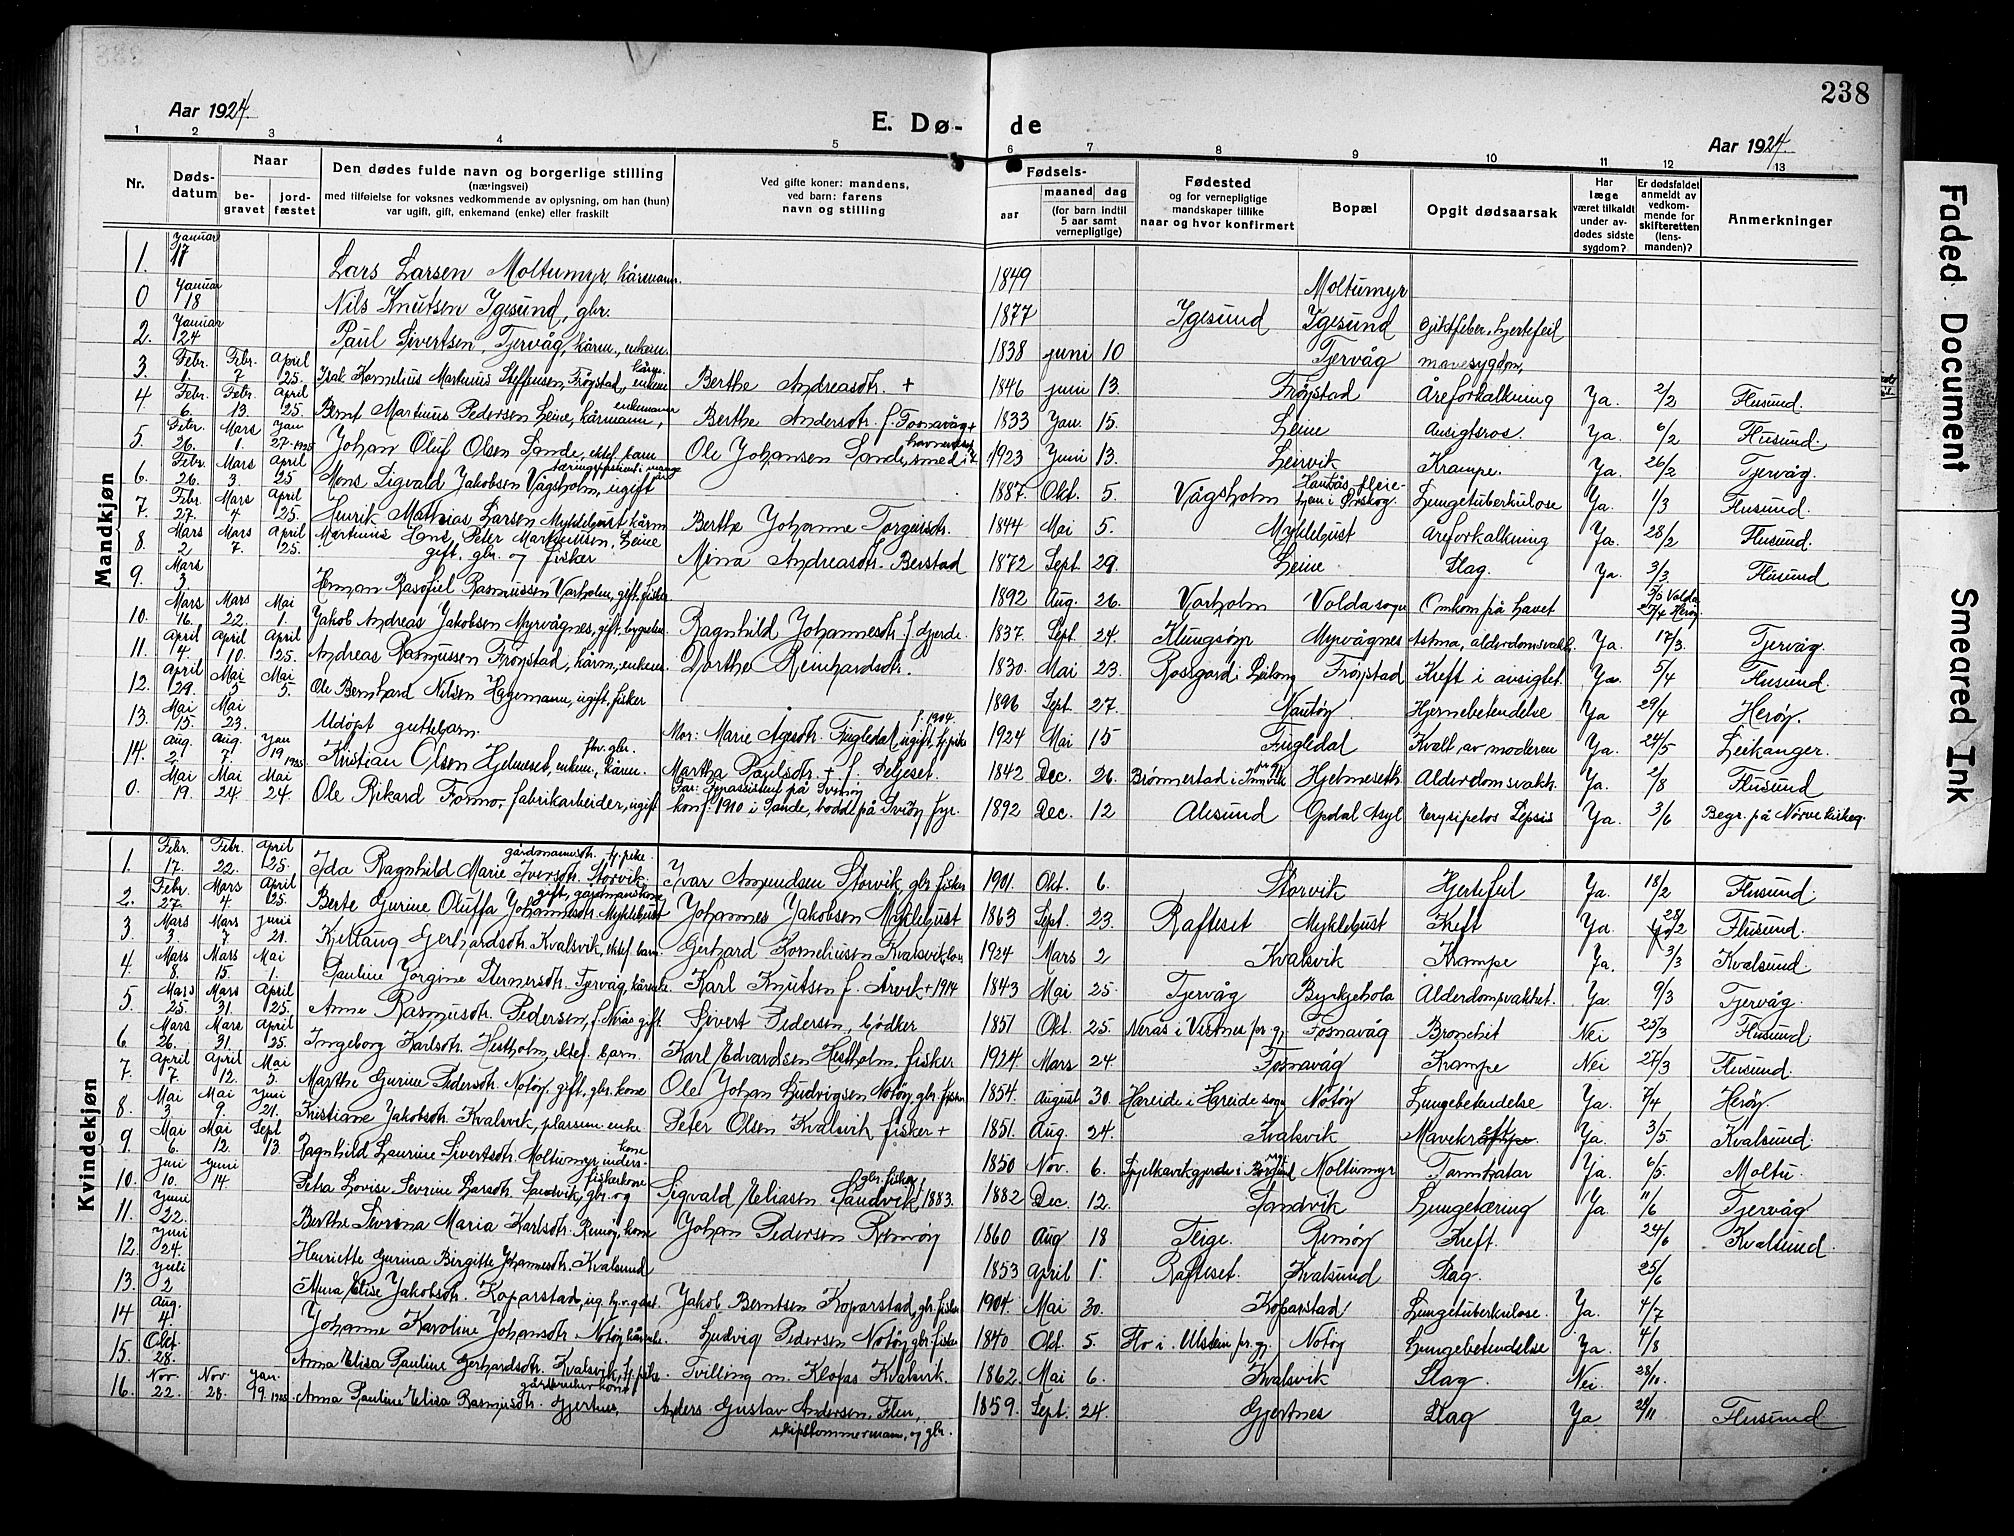 238
Aar 1924.
E. Dø-
de
Aar 1924.
1 2 3 4 5 6 7 8 9 10 11 12 13
Nr.
Døds-
datum
Naar
be-
gravet
jord-
fæstet
Den dødes fulde navn og borgerlige stilling
(næringsvei)
med tilføielse for voksnes vedkommende av oplysning, om han (hun)
var ugift, gift, enkemand (enke) eller fraskilt
Ved gifte koner: mandens,
ved barn: farens
navn og stilling
Fødsels-
aar
maaned dag
(for barn indtil
5 aar samt
vernepligtige)
Fødested
og for vernepligtige
mandskaper tillike
naar og hvor konfirmert
Bopæl
Opgit dødsaarsak
Har
læge
været tilkaldt
under av-
dødes sidste
sygdom?
Er dødsfaldet
anmeldt av
vedkom-
mende for
skifteretten
(lens-
manden)?
Anmerkninger
Mandkjøn
1. Januar 17 Lars Larsen Moltumyr, kårmann. 1849 Moltumyr
0 Januar 18 Nils Knutsen Igesund, gbr. 1877 Igesund Igesund Giktfeber, hjertefeil
2. Januar 24 Paul Sivertsen, Tjervåg, kårm, enkem. 1838 juni 10 Tjervåg mavesygdom,
3. Febr. 1. Febr. 7 April 25. Isak Kornelius Martinus Steffensen, Frøystad, kårm. enkem Berthe Andreasdtr. + 1846 juni 13. Frøystad Åreforkalkning Ya. 2/2 Flusund.
4 Febr. 6. Febr. 13. April 25 Bernt Martinus Pedersen Leine, kårmann, enkemann Berthe Andersdtr. f. Fosnavåg + 1833 Jan. 15. Leine Ansigtsros. Ya. 6/2 Flusund.
5. Febr. 26. Mars 1. Jan 27. 1925 Johan Oluf Olsen Sande, ektef. barn Ole Johansen Sande, smed 1923 Juni 13. Leirvik Krampe. Ya. 26/2 Tjervåg.
6. Febr. 26. Mars 3. April 25 Mons Sigvald Jakobsen Vågsholm, ugift 1887. Okt. 5. Vågsholm Haukås pleie-
hjem i Ørskog. Lungetuberkulose Ya. 1/3 Flusund.
7. Febr 27. Mars 4. April 25. Henrik Mathias Larsen Myklebust kårm Berthe Johanne Torgeirsdtr. 1844 Mai 5. Myklebust Åreforkalkning Ya. 28/2 Flusund.
8. Mars 2 Mars 7. April 25. Martinus Hans Peter Martinussen, Leine
gift. gbr. og fisker Mina Andreasdtr. Berstad 1872 Sept. 29. Leine Slag. Ya. 3/3. Flusund
9. Mars 3 Herman Rasofiel Rasmussen Vorholm, gift. fisker 1892 Aug. 26. Vorholm Volda sogn Omkom på havet 3/5 Volda
27/4 Herøy
10. Mars 16. Mars 22. Mai 1. Jakob Andreas Jakobsen Myrvågnes, gift. Ragnhild Johannesdtr. f. Gjerde. 1837. Sept. 24. Klungsøyr Myrvågnes Astma, alderdomsvakh. Ya. 17/3. Tjervåg
11. April 4. April 10. April 25. Andreas Rasmussen Frøystad, kårm, enkem. Dorthe Reinhardsdtr. 1830. Mai 23 Rosrgard i Leikong Frøystad Kreft i ansigtet. Ya. 5/4 Flusund.
12. April 29. Mai 5 Mai 5. Ole Bernhard Nilsen Hagemann, ugift, fisker 1896 Sept. 27. Nautøy Hjernebetendelse Ya 29/4 Herøy.
13. Mai 15. Mai 23. Udøpt guttebarn. Mor: Marie Agesdtr. Fugledal ugift, tj. pike f. 1904. 1924 Mai 15 Fugledal Kvalt av moderen Ya. 24/5 Leikanger.
14. Aug. 2. Aug. 7. Jan 19 1925 Kristian Olsen Hjelmeset, enkem, kårm. fhv. gbr. Martha Paulsdtr. + f. Delgeset. 1842 Dec. 26. Brønnerstad i Innvik Hjelmeseth. Alderdomsvakh. Ya. 2/8 Flusund
0. Mai 19. Mai 24 Mai 24. Ole Rikard Formo, fabrikarbeider, ugift Far: fyrassistent på Svinøy
konf. 1910 i Sande, bodde på Svinøy fyr. 1892 Dec. 12 Ålesund Opdal Asyl Erysipelas Sepsis Ya. 3/6 Begr. på Nørve kirkeg.
Kvindekjøn
1. Febr. 17. Febr. 22. April 25. Ida Ragnhild Marie Iversdtr. Storvik. gårdmannsdtr. tj. pike. Ivar Amundsen Storvik, gbr. fisker 1901. Okt. 6. Storvik Hjertefeil Ya. 18/2 Flusund
2. Febr. 27. Mars 4 April 25. Berte Gurine Oluffa Johannesdtr. Myklebust gift, gårdmanskone Johannes Jakobsen Myklebust 1863 Sept. 23. Rafteset Myklebust Kreft Ya 28/2 Flusund.
3. Mars 3. Mars 7 Juni 21. Kjellaug Gerhardsdtr. Kvalsvik, ektef. barn Gerhard Korneliusen Kvalsvik, 1924 Mars 2 Kvalsvik Krampe Ya. 3/3 Kvalsund
4. Mars 8. Mars 15. Mai 1. Pauline Jorgine Stenersdtr. Tjervåg, kårenke. Karl Knutsen f. Årvik + 1914 1843 Mai 25. Tjervåg Byrkjehola Alderdomsvakhet. Ya 9/3 Tjervåg.
5. Mars 25. Mars 31. April 25. Anne Rasmusdtr. Pedersen, f. Nerås gift Sivert Pedersen, bødker 1851 Okt. 25. Nerås i Vestnes pr. gj. Fosnavåg Bronchit Nei 25/3 Flusund.
6 Mars 26. Mars 31. April 25. Ingeborg Karlsdtr. Hestholm, ektef. barn. Karl Edvardsen Hestholm. fisker 1924. Mars 24. Fosnavåg Krampe Nei 27/3 Flusund.
7. April 7. April 12. Mai 5. Marthe Gurine Pedersdtr. Notøy. gift. gbr. kone Ole Johan Ludvigsen Notøy, gbr. fisker 1854. August 30. Hareide i Hareide sogn Notøy Lungebetendelse Ya. 7/4 Herøy.
8. Mai 3. Mai 9. Juni 21. Kristiane Jakobsdtr. Kvalsvik, plassm. enke. Peter Olsen Kvalsvik fisker + 1851. Aug. 24. Kvalsvik Mavekreft Ya. 3/5. Kvalsund.
9. Mai 6. Mai 12. Sept 13. Ragnhild Laurine Sivertsdtr. Moltumyr, inders- kone 1850 Nov. 6. Spjelkavikgjerde i Borgund Moltumyr Tarmkatar Ya. 6/5. Moltu.
10. Juni 10. Juni 14. Petra Lovise Sevrine Larsdtr. Sandvik, gbr. og fiskerkone Sigvald Eliasen Sandvik, f. 1883. gbr. fisker 1882 Dec. 12. Sandvik Lungetæring Ya 11/6 Tjervåg
11. Juni 22. Berthe Sevrina Maria Karlsdtr. Remøy, kone Johan Pedersen Remøy 1860 Aug 18 Teige. Remøy Kreft. 24/6 Kvalsund.
12. Juni 24. Henriette Gurina Birgitte Johannesdtr. Kvalsund 1853 April 1. Rafteset. Kvalsund Slag. 25/6
13. Juli 2 Anna Elise Jakobsdtr. Koparstad, ug. Jakob Berntsen Koparstad, gbr. fisker 1904. Mai 30. Koparstad Lungetuberkulose. Ya. 4/7
14 Aug. 4. Johanne Karoline Johansdtr. Notøy kårenke. Ludvig Pedersen Notøy, gbr. fisker 1840 Okt. 5. Flo i. Ulstein pr. gj. Notøy Lungebetendelse Ya. 4/8
15. Okt. 28. Anna Elisa Pauline Gerhardsdtr. Kvalsvik, tj. pike. Tvilling m. Klofas Kvalsvik. 1862 Mai 6. Kvalsvik Slag. Nei. 28/10.
16. Nov. 22. Nov 28. Jan. 19. 1925 Anna Pauline Elisa Rasmusdtr. Gjertnes, gårdbruker kone Anders Gustav Andersen Flem,
skipstømmermann, og gbr. 1859. Sept. 24. Gjertnes Slag Ya 24/11 Flusund.
Faded Document
Smeared Ink